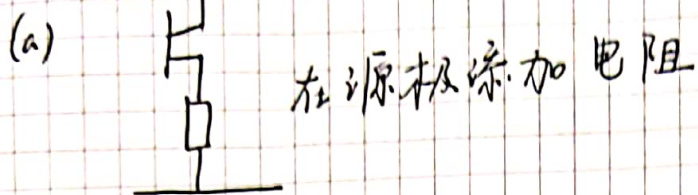 (a)
在源极添加电阻